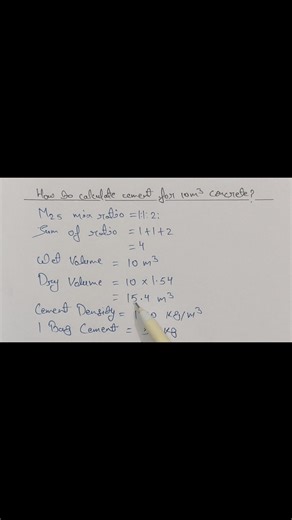 How to calculate cement for 10m³ concrete?
M25 mix ratio = 1:1:2:
Sum of ratio = 1+1+2
= 4
Wet Volume = 10 m³
Dry Volume = 10 × 1.54
= 15.4 m³
Cement Density = kg/m³
1 Bag Cement = kg